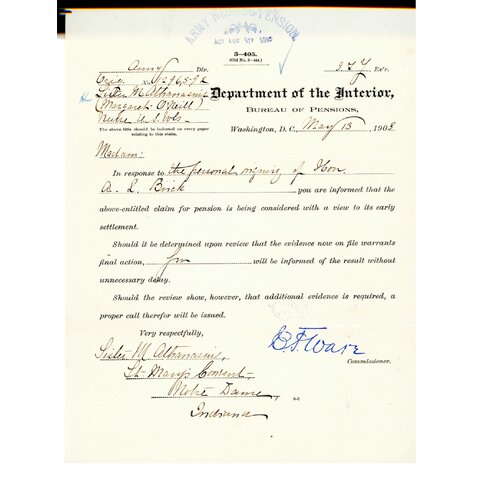 ARMY NURSE PENSION.
ACT AUG 5TH 1892
3—405.
(Old No. 3-441.)
Army Div.
Orig. No. 1296596
Sister M Athanasius
(Margaret O'Neill)
Nurse U.S. Vols.
The above title should be indorsed on every paper
relating to this claim.
Ex'r.
Department of the Interior,
BUREAU OF PENSIONS,
Washington, D. C., May 13, 1903
Madam:
In response to the personal inquiry of Hon.
A. L. Brick you are informed that the
above-entitled claim for pension is being considered with a view to its early
settlement.
Should it be determined upon review that the evidence now on file warrants
final action, you will be informed of the result without
unnecessary delay.
Should the review show, however, that additional evidence is required, a
proper call therefor will be issued.
Very respectfully,
E. F. Ware
Commissioner.
Sister M Athanasius,
St. Marys Convent
Notre Dame,
Indiana
6-3